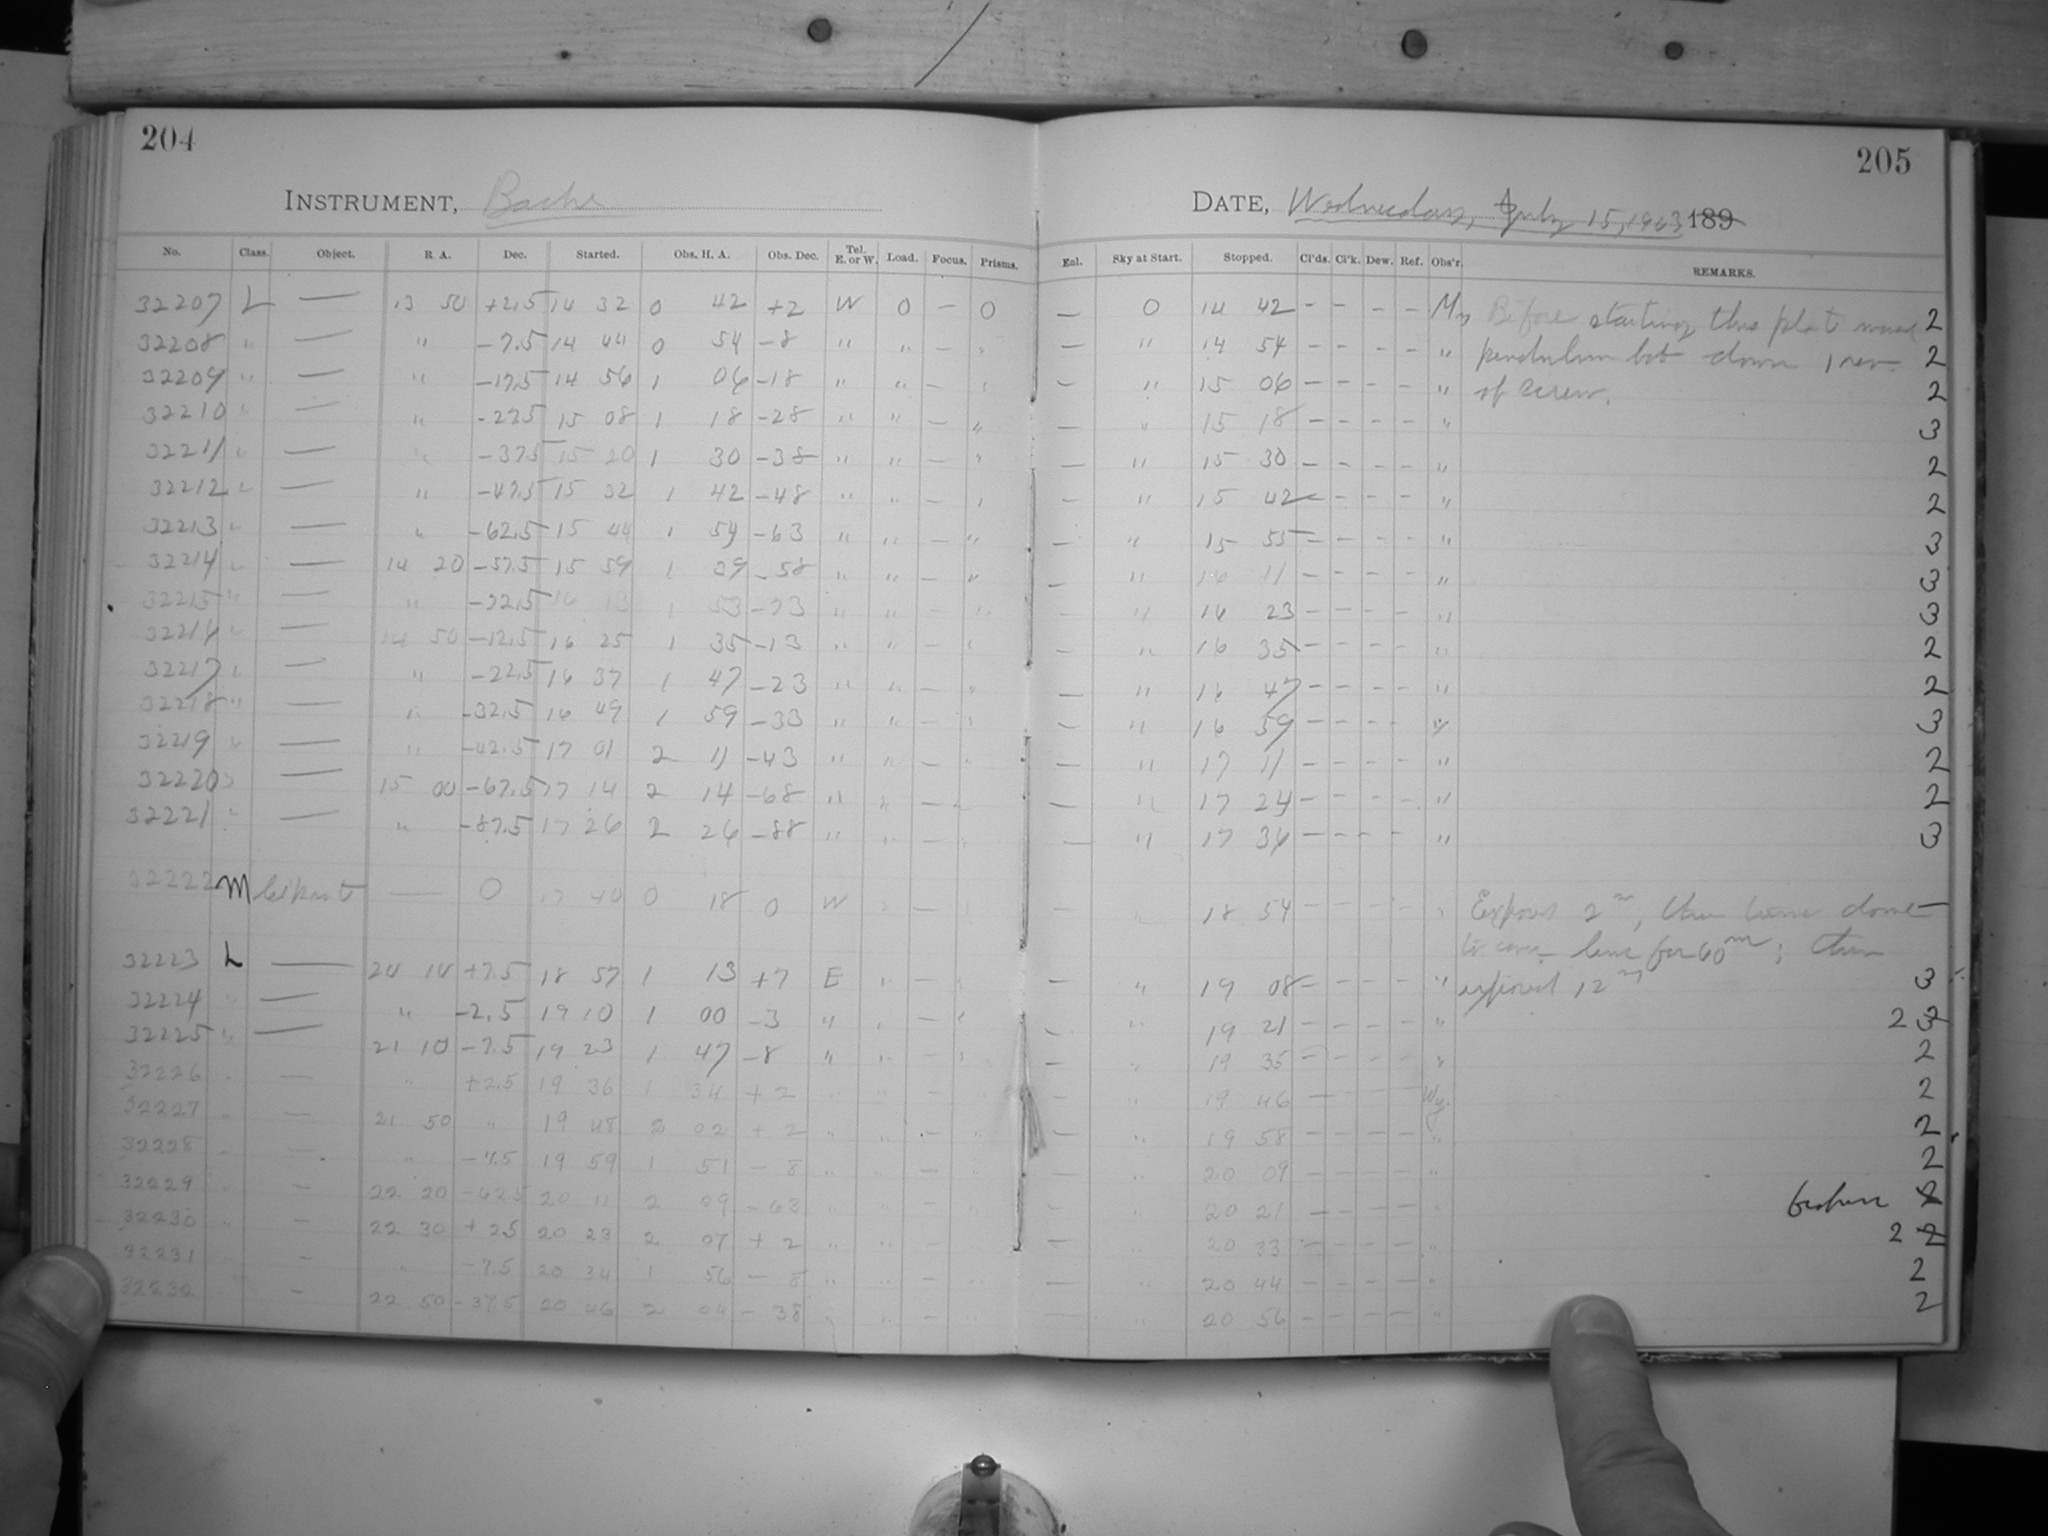 204
205
INSTRUMENT, Bache
DATE, Wednesday, July 15, 1903 189
No. Class. Object. R. A. Dec. Started. Obs. H. A. Obs. Dec. Tel. E. or W. Load. Focus. Prisms. Enl. Sky at Start. Stopped. Cl'ds. Cl'k. Dew. Ref. Obs'r. REMARKS.
32207 L — 13 50 +2.5 14 32 0 42 +2 W 0 — 0 — 0 14 42 — — — — My Before starting this plate moved 2
32208 " — " -7.5 14 44 0 54 -8 " " — " — " 14 54 — — — — " pendulum bob down 1 rev. 2
32209 " — " -17.5 14 56 1 06 -18 " " — " — " 15 06 — — — — " of screw. 2
32210 " — " -27.5 15 08 1 18 -28 " " — " — " 15 18 — — — — " 3
32211 " — " -37.5 15 20 1 30 -38 " " — " — " 15 30 — — — — " 2
32212 " — " -47.5 15 32 1 42 -48 " " — " — " 15 42 — — — — " 2
32213 " — " -62.5 15 44 1 54 -63 " " — " — " 15 55 — — — — " 3
32214 " — 14 20 -57.5 15 59 1 39 -58 " " — " — " 16 11 — — — — " 3
32215 " — " -72.5 16 13 1 53 -73 " " — " — " 16 23 — — — — " 3
32216 " — 14 50 -12.5 16 25 1 35 -13 " " — " — " 16 35 — — — — " 2
32217 " — " -22.5 16 37 1 47 -23 " " — " — " 16 47 — — — — " 2
32218 " — " -32.5 16 49 1 59 -33 " " — " — " 16 59 — — — — " 3
32219 " — " -42.5 17 01 2 11 -43 " " — " — " 17 11 — — — — " 2
32220 " — 15 00 -67.5 17 14 2 14 -68 " " — " — " 17 24 — — — — " 2
32221 " — " -87.5 17 26 2 26 -88 " " — " — " 17 36 — — — — " 3
32222 M — 0 17 40 0 18 0 W " — " — " 18 54 — — — — " Exposed 2m, then turn dome
to cover lens for 60m; then
32223 L — 20 14 +7.5 18 57 1 13 +7 E " — " — " 19 08 — — — — " exposed 12m 3
32224 " — " -2.5 19 10 1 00 -3 " " — " — " 19 21 — — — — " 2 3
32225 " — 21 10 -7.5 19 23 1 47 -8 " " — " — " 19 35 — — — — " 2
32226 " — " +2.5 19 36 1 34 +2 " " — " — " 19 46 — — — — Wy. 2
32227 " — 21 50 " 19 48 2 02 +2 " " — " — " 19 58 — — — — " 2
32228 " — " -7.5 19 59 1 51 -8 " " — " — " 20 09 — — — — " 2
32229 " — 22 20 -62.5 20 11 2 09 -63 " " — " — " 20 21 — — — — " broken 2
32230 " — 22 30 +2.5 20 23 2 07 +2 " " — " — " 20 33 — — — — " 2 2
32231 " — " -7.5 20 34 1 56 -8 " " — " — " 20 44 — — — — " 2
32232 — 22 50 -37.5 20 46 2 04 -38 " " — " — " 20 56 — — — — " 2